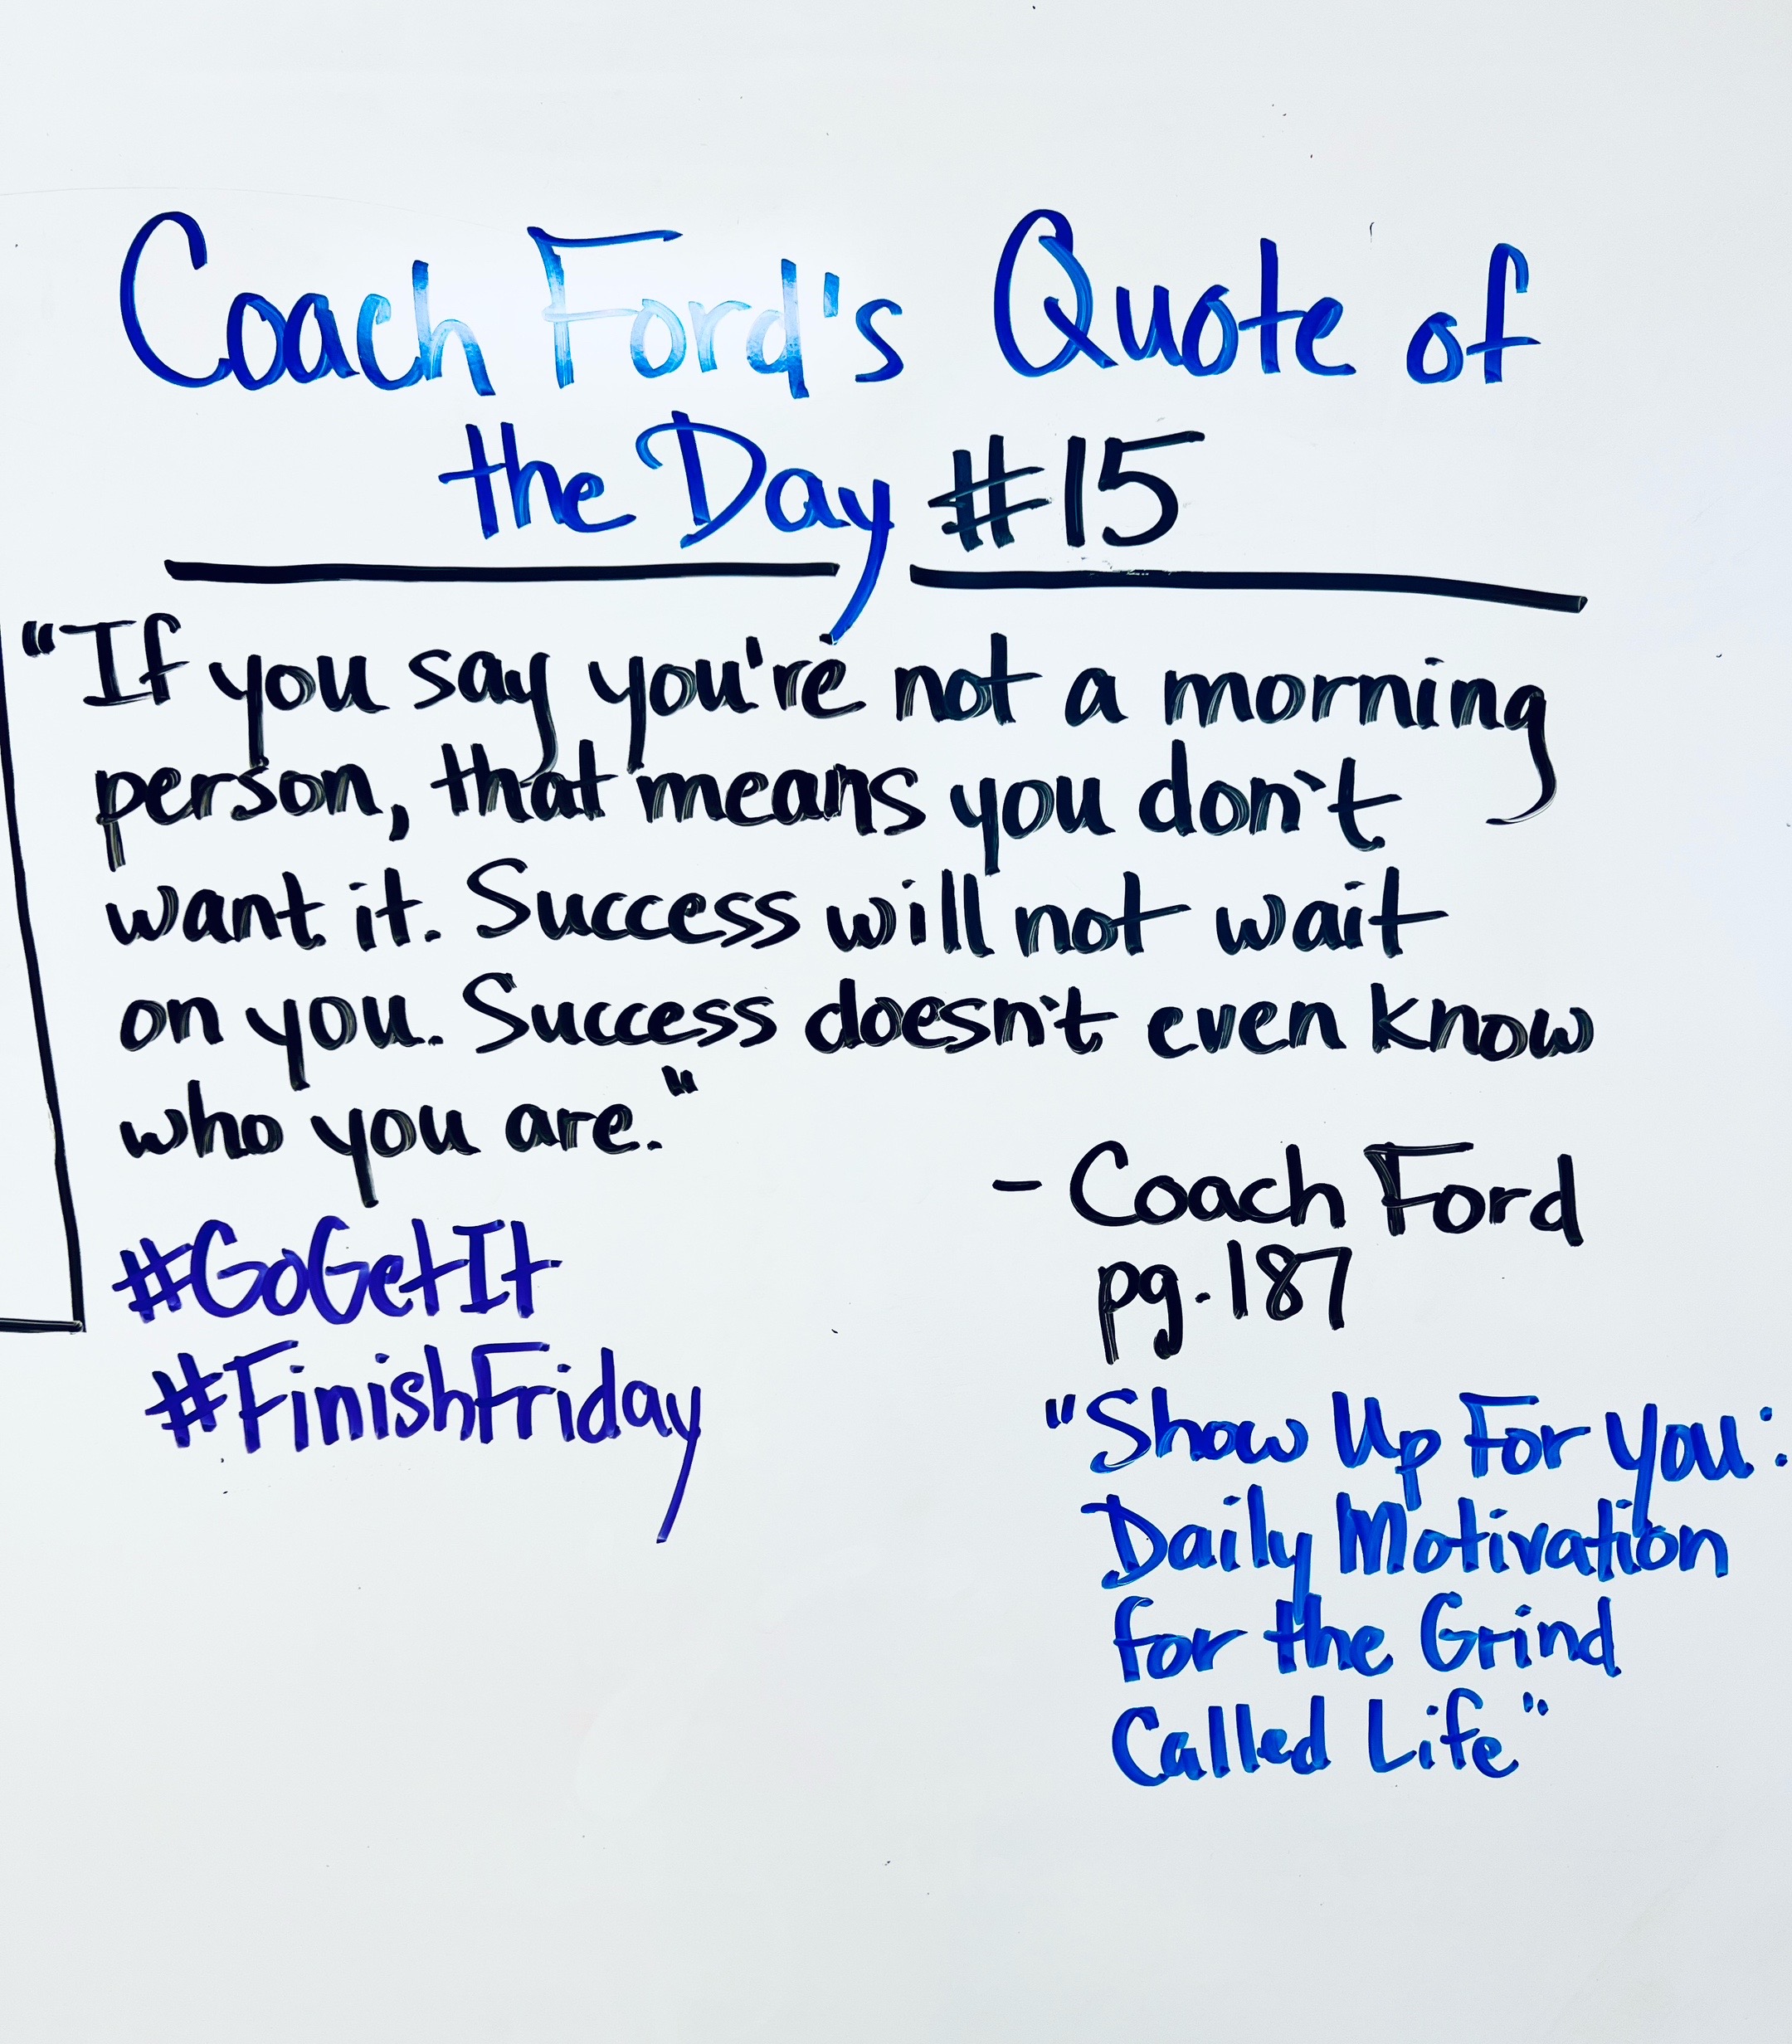 Coach Ford's Quote of
the Day #15
"If you say you're not a morning
person, that means you don't
want it. Success will not wait
on you. Success doesn't even know
who you are."
- Coach Ford
pg. 187
#GoGetIt
#FinishFriday
"Show Up For You:
Daily Motivation
for the Grind
Called Life"